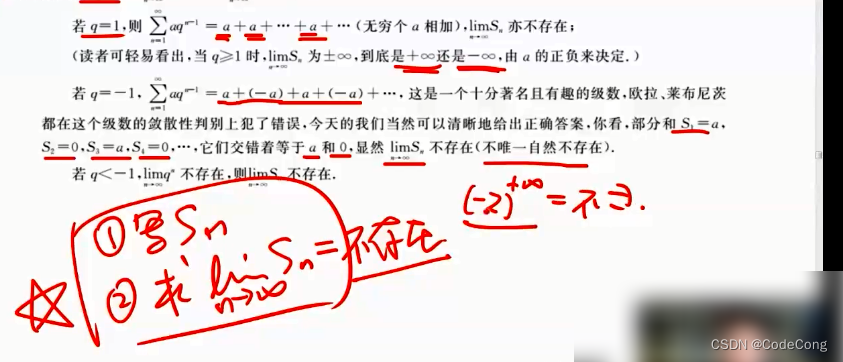 若 q=1,则 ∑_{n=1}^{∞} aq^{n-1} = a+a+…+a+…(无穷个 a 相加),lim_{n→∞} S_n 亦不存在;
(读者可轻易看出,当 q≥1 时,lim_{n→∞} S_n 为±∞,到底是+∞还是-∞,由 a 的正负来决定.)
若 q=-1, ∑_{n=1}^{∞} aq^{n-1} = a+(-a)+a+(-a)+…,这是一个十分著名且有趣的级数,欧拉、莱布尼茨
都在这个级数的敛散性判别上犯了错误,今天的我们当然可以清晰地给出正确答案,你看,部分和 S_1=a,
S_2=0,S_3=a,S_4=0,…,它们交错着等于 a 和 0,显然 lim_{n→∞} S_n 不存在(不唯一自然不存在).
若 q<-1,lim_{n→∞} q^n 不存在,则 lim_{n→∞} S_n 不存在.
(-2)^{+∞} = 不∃.
① 写 S_n
② 求 lim_{n→∞} S_n = 不存在
CSDN @CodeCong